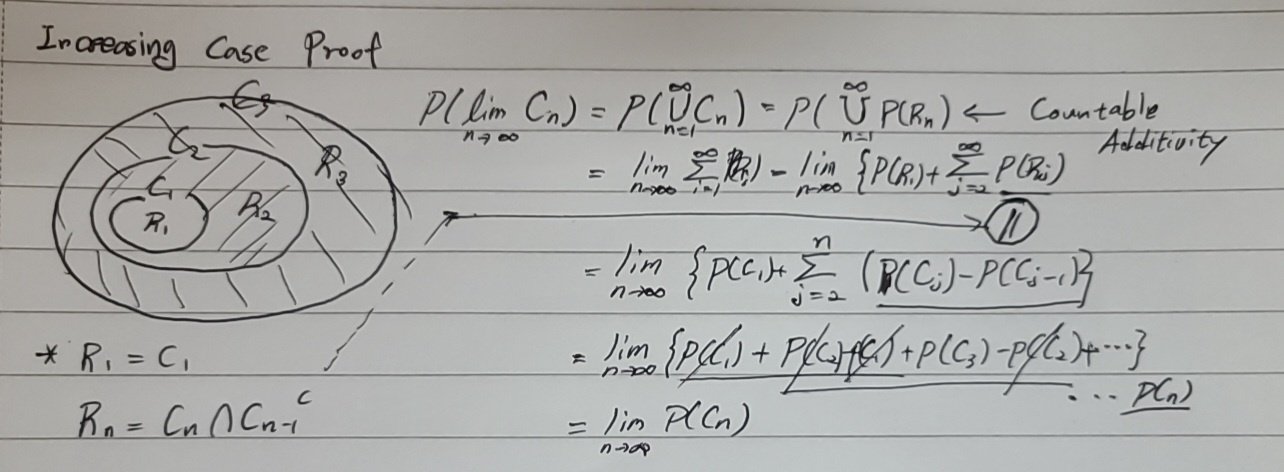 Increasing Case Proof
C3
C2
C1
R1
R2
R3
P(lim n→∞ Cn) = P(∞∪n=1 Cn) = P(∞∪n=1 P(Rn) ← Countable Additivity
= lim n→∞ ∞Σi=1 P(Ri) = lim n→∞ {P(R1) + ∞Σj=2 P(Rj)
= lim n→∞ {P(C1) + nΣj=2 (P(Cj) - P(Cj-1)}
* R1 = C1
= lim n→∞ {P(C1) + P(C2) - P(C1) + P(C3) - P(C2) + ...}
... P(Cn)
Rn = Cn ∩ Cn-1^c
= lim n→∞ P(Cn)